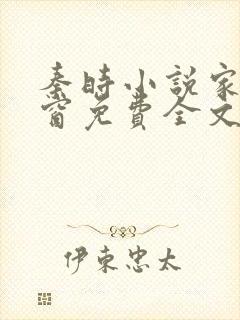 秦时小说家
窗免费全文
伊東忠太